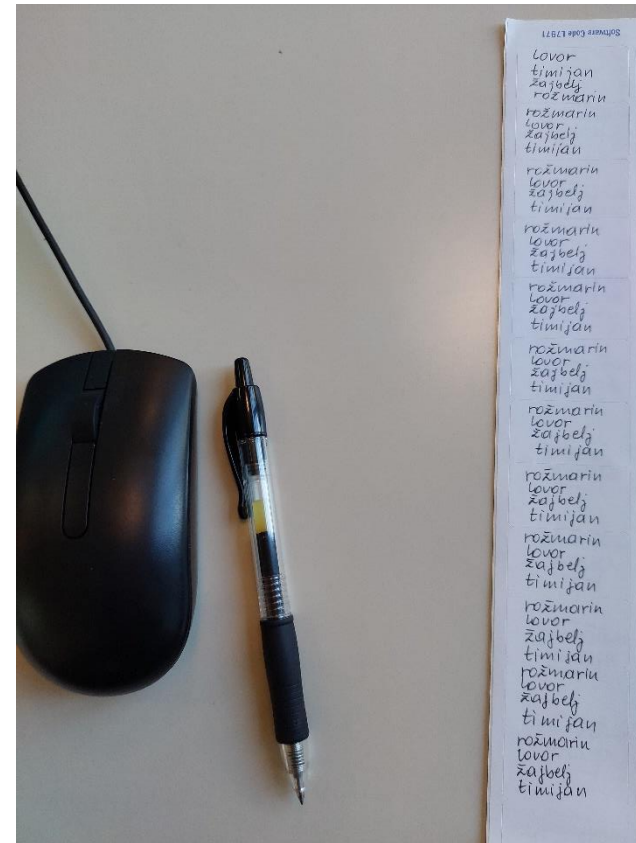 Software Code L7971
lovor
timijan
žajbelj
rožmarin
rožmarin
lovor
žajbelj
timijan
rožmarin
lovor
žajbelj
timijan
rožmarin
lovor
žajbelj
timijan
rožmarin
lovor
žajbelj
timijan
rožmarin
lovor
žajbelj
timijan
rožmarin
lovor
žajbelj
timijan
rožmarin
lovor
žajbelj
timijan
rožmarin
lovor
žajbelj
timijan
rožmarin
lovor
žajbelj
timijan
rožmarin
lovor
žajbelj
timijan
rožmarin
lovor
žajbelj
timijan